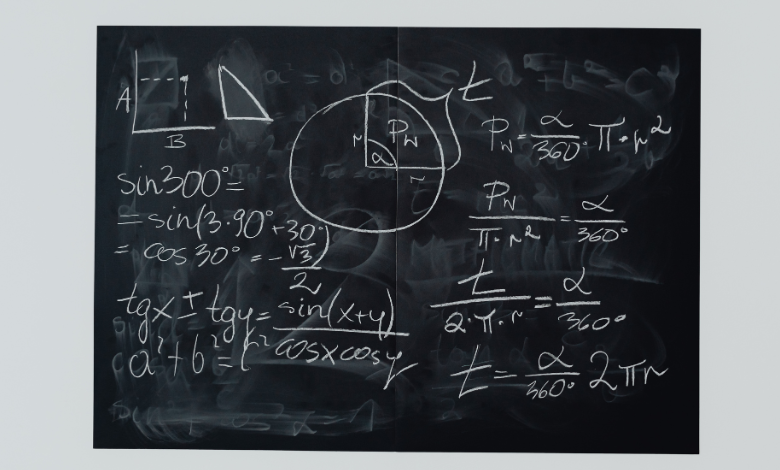 A
B
t
r
α
P_w
r
sin300°=
=sin(3·90°+30°)
= cos30° = -√3/2
tgx ± tgy = sin(x+y)/cosxcosy
a²+b²=c²
P_w = α/360° π·r²
P_w/π·r² = α/360°
t/2·π·r = α/360°
t = α/360° 2πr